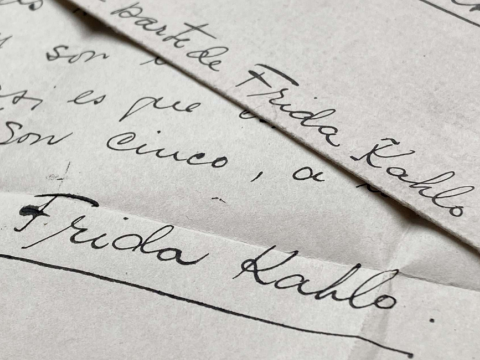 parte de
Frida Kahlo
son
es que
son cinco, a
Frida Kahlo.